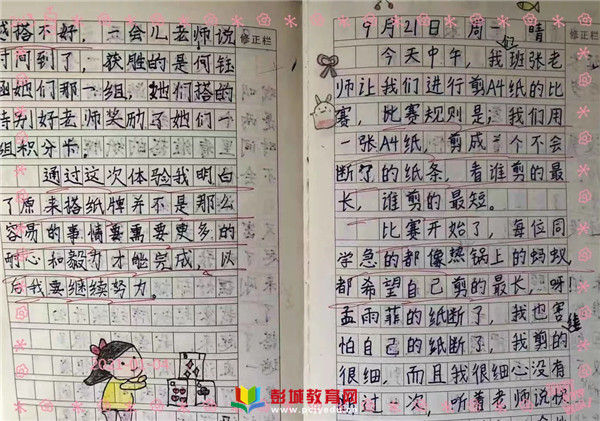 搭不好,一会儿老师说
时间到了,获胜的是何钰
她们那一组,她们搭的
特别好老师奖励了她们一
组积分卡。
通过这次体验我明白
了原来搭纸牌并不是那么
容易的事情要需要更多的
耐心和毅力才能完成,以
后我要继续努力。
修正栏
9月21日 周一 晴
今天中午,我班张老
师让我们进行剪A4纸的比
赛,比赛规则是:我们用
一张A4纸,剪成一个不会
断了的纸条,看谁剪的最
长,谁剪的最短。
比赛开始了,每位同
学急的都像热锅上的蚂蚁
都希望自己剪的最长,呀!
孟雨菲的纸断了,我也害
怕自己的纸断了,我剪的
很细,而且我很细心没有
过一次,听着老师说快
修正栏
彭城教育网
www.pcjyedu.cn